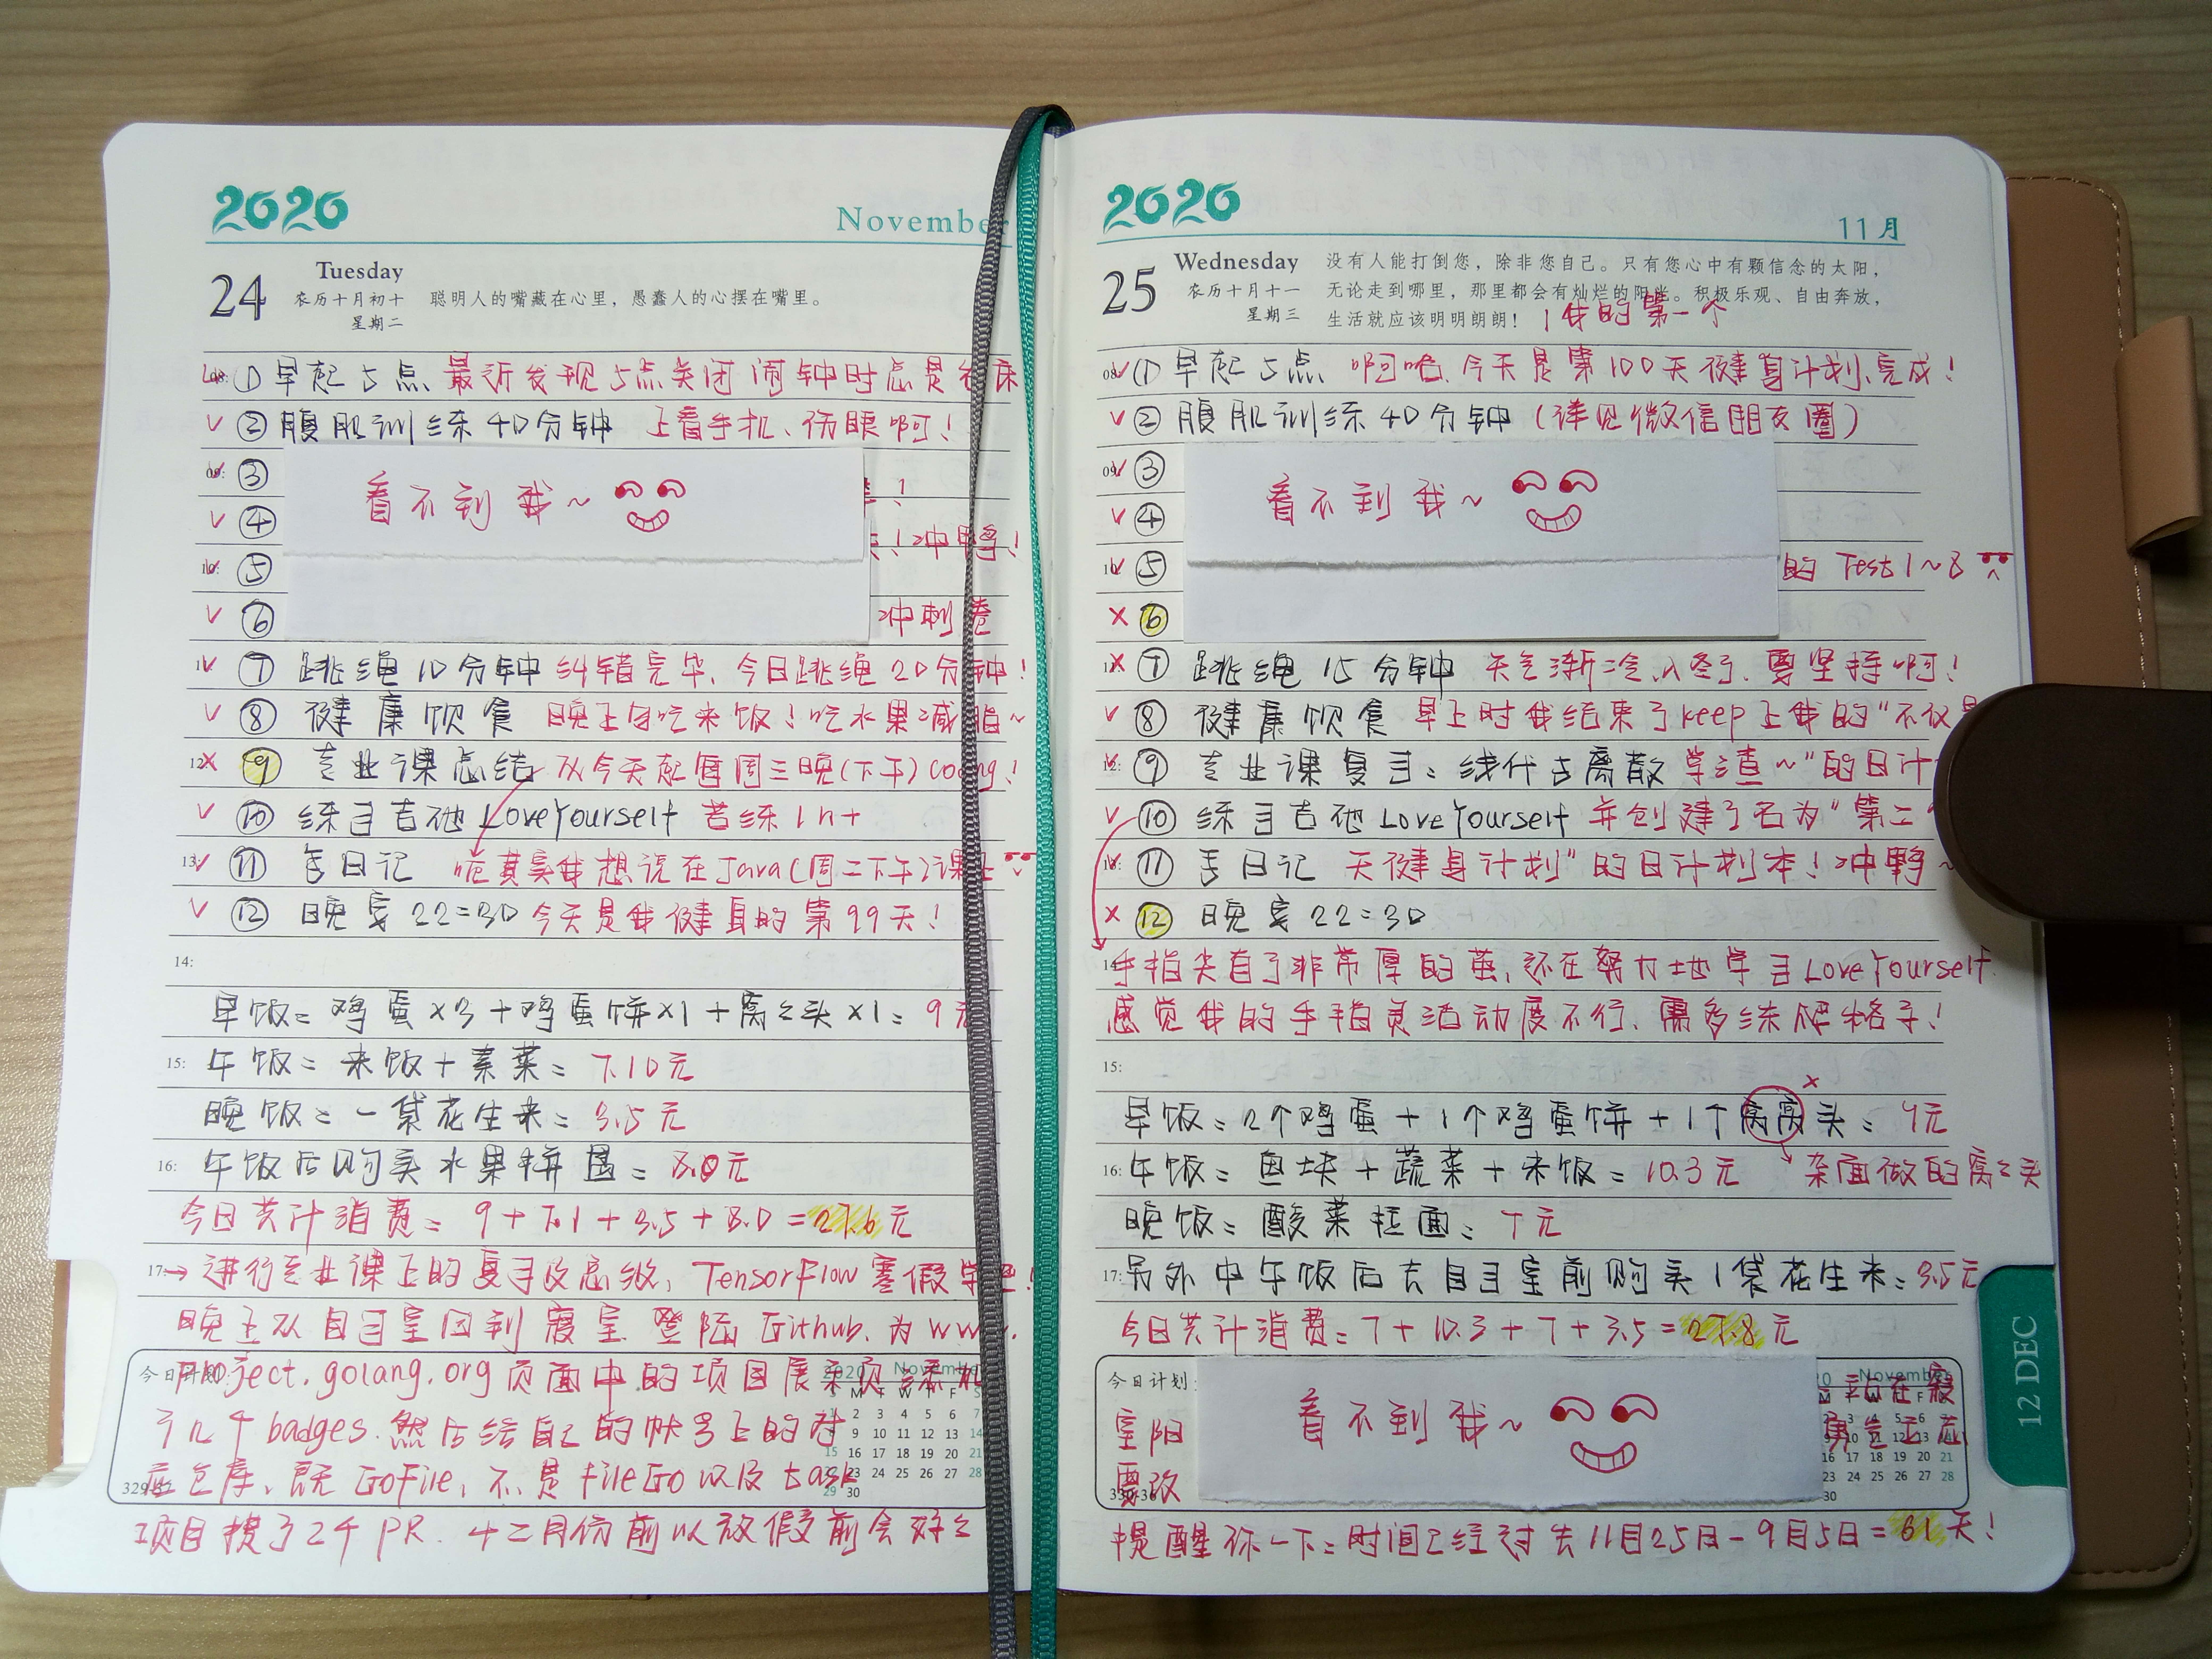 2020
November
24
Tuesday
农历十月初十
星期二
聪明人的嘴藏在心里，愚蠢人的心摆在嘴里。
①早起5点 最近发现5点关闭闹钟时总是在床
②腹肌训练40分钟 上看手机、伤眼啊！
③
看不到我~
④
！冲鸭！
⑤
⑥ 冲刺卷
⑦ 跳绳10分钟 纠错完毕、今日跳绳20分钟！
⑧ 健康饮食 晚上勿吃米饭！吃水果减脂~
⑨ 专业课总结 从今天起每周三晚(下午)coding！
⑩ 练习吉他LoveYourself 苦练1h+
⑪ 写日记 呃其实我想说在Java(周二下午)课上
⑫ 晚安22:30 今天是我健身的第99天！
14:
早饭: 鸡蛋×3+鸡蛋饼×1+窝窝头×1: 9元
15: 午饭: 米饭+素菜: 7.10元
晚饭: 一袋花生米: 3.5元
16: 午饭后购买水果拼盘: 8.0元
今日共计消费: 9+7.1+3.5+8.0=27.6元
17: → 进行专业课上的复习及总结, TensorFlow寒假学
晚上从自习室回到寝室 登陆Github、为www.
project.golang.org页面中的项目展示页添加
今日计划:
2020 November
了几个badges.然后给自己的帐号上的对
应仓库、既GoFile, 不是FileGo以及task
329-37
项目提了2个PR. 十二月份前以放假前会好好
2020
11月
25
Wednesday
农历十月十一
星期三
没有人能打倒您，除非您自己。只有您心中有颗信念的太阳，
无论走到哪里，那里都会有灿烂的阳光。积极乐观、自由奔放，
生活就应该明明朗朗！
我的第一个
①早起5点 啊哈、今天是第100天健身计划、完成！
②腹肌训练40分钟(详见微信朋友圈)
③
看不到我~
④
⑤ 的Test1~8
⑥
⑦ 跳绳15分钟 天气渐冷、入冬了、要坚持啊！
⑧ 健康饮食 早上时我结束了keep上我的“不仅是
⑨ 专业课复习: 线代与离散 学渣~”的日计
⑩ 练习吉他LoveYourself 并创建了名为“第二
⑪ 写日记 天健身计划”的日计划本！冲鸭~
⑫ 晚安22:30
手指尖有了非常厚的茧, 还在努力地学习LoveYourself
感觉我的手指灵活动度不行、需多练爬格子！
15:
早饭: 2个鸡蛋+1个鸡蛋饼+1个窝窝头: 7元
16: 午饭: 鱼块+蔬菜+米饭: 10.3元 杂面做的窝窝头
晚饭: 酸菜拉面: 7元
17: 另外中午饭后去自习室前购买1袋花生米: 3.5元
今日共计消费: 7+10.3+7+3.5=27.8元
今日计划:
看不到我~
室阳
要改
提醒你一下: 时间已经过去11月25日-9月5日=61天！
12 DEC